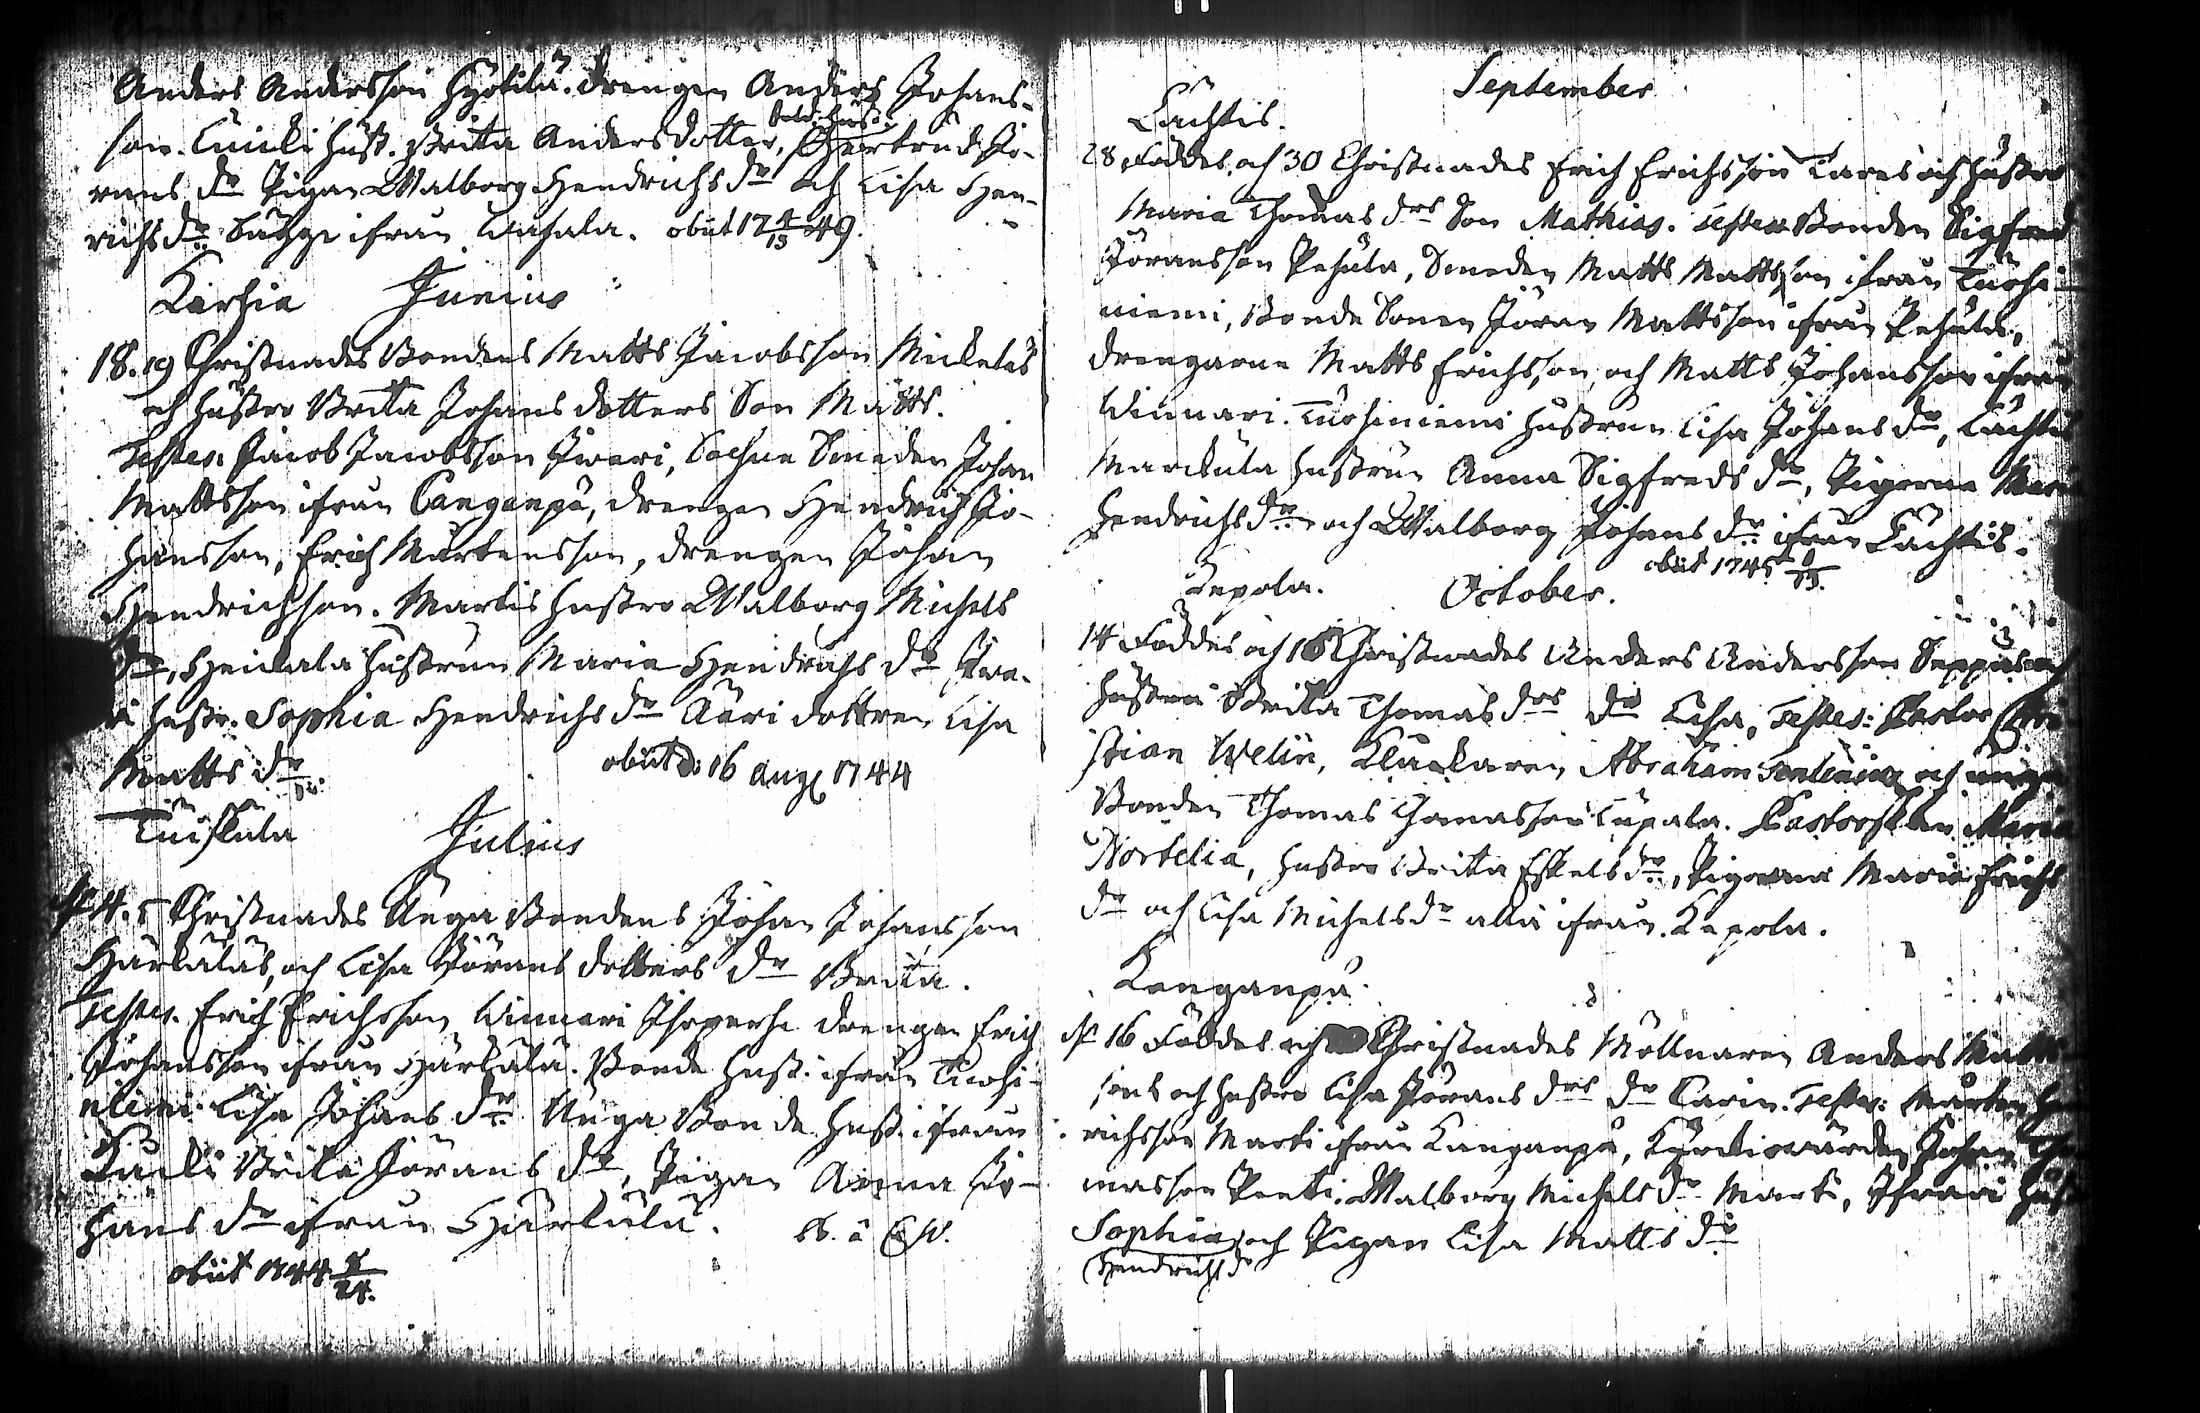 Anders Andersson Hyötilä. Drengen Anders Johans-
son. Cuicki Hust. Brita Andersdotter, Sold: Hust: Gertrud Jö-
rans dr Pigan Walborg Hendrichs dr och Lisa Hen-
richs dr ifrån Wahala. obiit 17 4/13 49.
Karhia Junius
18. 19 Christnades Bondens Matts Jacobsson Mickelas
och hustro Brita Johans dotters Son Matts.
Testes: Jacob Jacobsson Iwari, Sochne Smeden Johan
Mattsson ifrån Canganpä, drengen Hendrich Jo-
hansson, Erich Mårtensson, drengen Johan
Hendrichson. Martis hustro Walborg Michels
dr, Heickala hustrun Maria Hendrichs dr Iwa-
ri hustr. Sophia Hendrichs dr Ääri dottren Lisa
Matts dr obiit d: 16 Aug 1744
Tuiskula Julius
4. 5 Christnades Unga Bondens Johan Johansson
Härkäläs, och Lisa Jörans dotters dr Brita.
Testes. Erich Erichsson Winnari Isoperhe drengen Erich
Johansson ifrån Härkälä. Bonde Hust. ifrån Tuohi-
niemi Lisa Johans dr Unga Bonde Hust. ifrån
Brita Jörans dr, Pigan Anna Jo-
hans dr ifrån Härkälä.
obiit 1744 8/24.
September
Lächtis.
28 Föddes, och 30 Christnades Erich Erichsson Lares och Hustro
Maria Thomas drs Son Mathias. Testes Bonden Sigfred
Jöransson Pehula, Smeden Matts Mattsson ifrån Tuohi-
niemi, Bonde Sonen Jöran Mattsson ifrån Pehula,
drengarne Matts Erichsson, och Matts Johansson ifrån
Winnari. Tuohiniemi hustrun Lisa Johans dr, Lächtis
Marckula hustrun Anna Sigfreds dr, Pigorna Maria
Hendrichs dr och Walborg Johans dr ifrån Lächtis.
obiit 1745 6/13.
Kepola. October.
14 Föddes och 16 Christnades Anders Andersson Seppäs och
hustrus Brita Thomas drs dr Lisa, Testes: Pastor Chri
stian Welin, Klackaren Abraham och unga
Bonden Thomas Thomasson Lupala. Pastorskan Maria
Nortelia, hustro Brita Eskels dr, Pigorna Maria Erichs
dr och Lisa Michels dr alla ifrån Kepola.
Kanganpä.
16 Föddes och Christnades Möllnaren Anders Matts
sons och hustro Lisa Jörans drs dr Carin. Testes: Mårten Hen
richsson Marti ifrån Kanganpä, Kyrckiowärden Johan Tho
masson Penti. Walborg Michels dr Marti, Ifwari Hust
Sophia Hendrichs dr och Pigan Lisa Matts dr